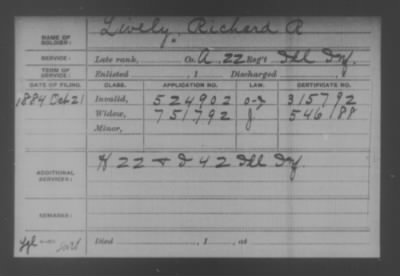 NAME OF SOLDIER: Lively, Richard A
SERVICE: Late rank, Co. A, 22 Reg't Ill Inf.
TERM OF SERVICE: Enlisted , 1 Discharged
DATE OF FILING. CLASS. APPLICATION NO. LAW. CERTIFICATE NO.
1884 Oct 21 Invalid, 524902 315792
Widow, 751792 546188
Minor,
ADDITIONAL SERVICES: H 22 + D 42 Ill Inf.
REMARKS:
Died , 1 , at